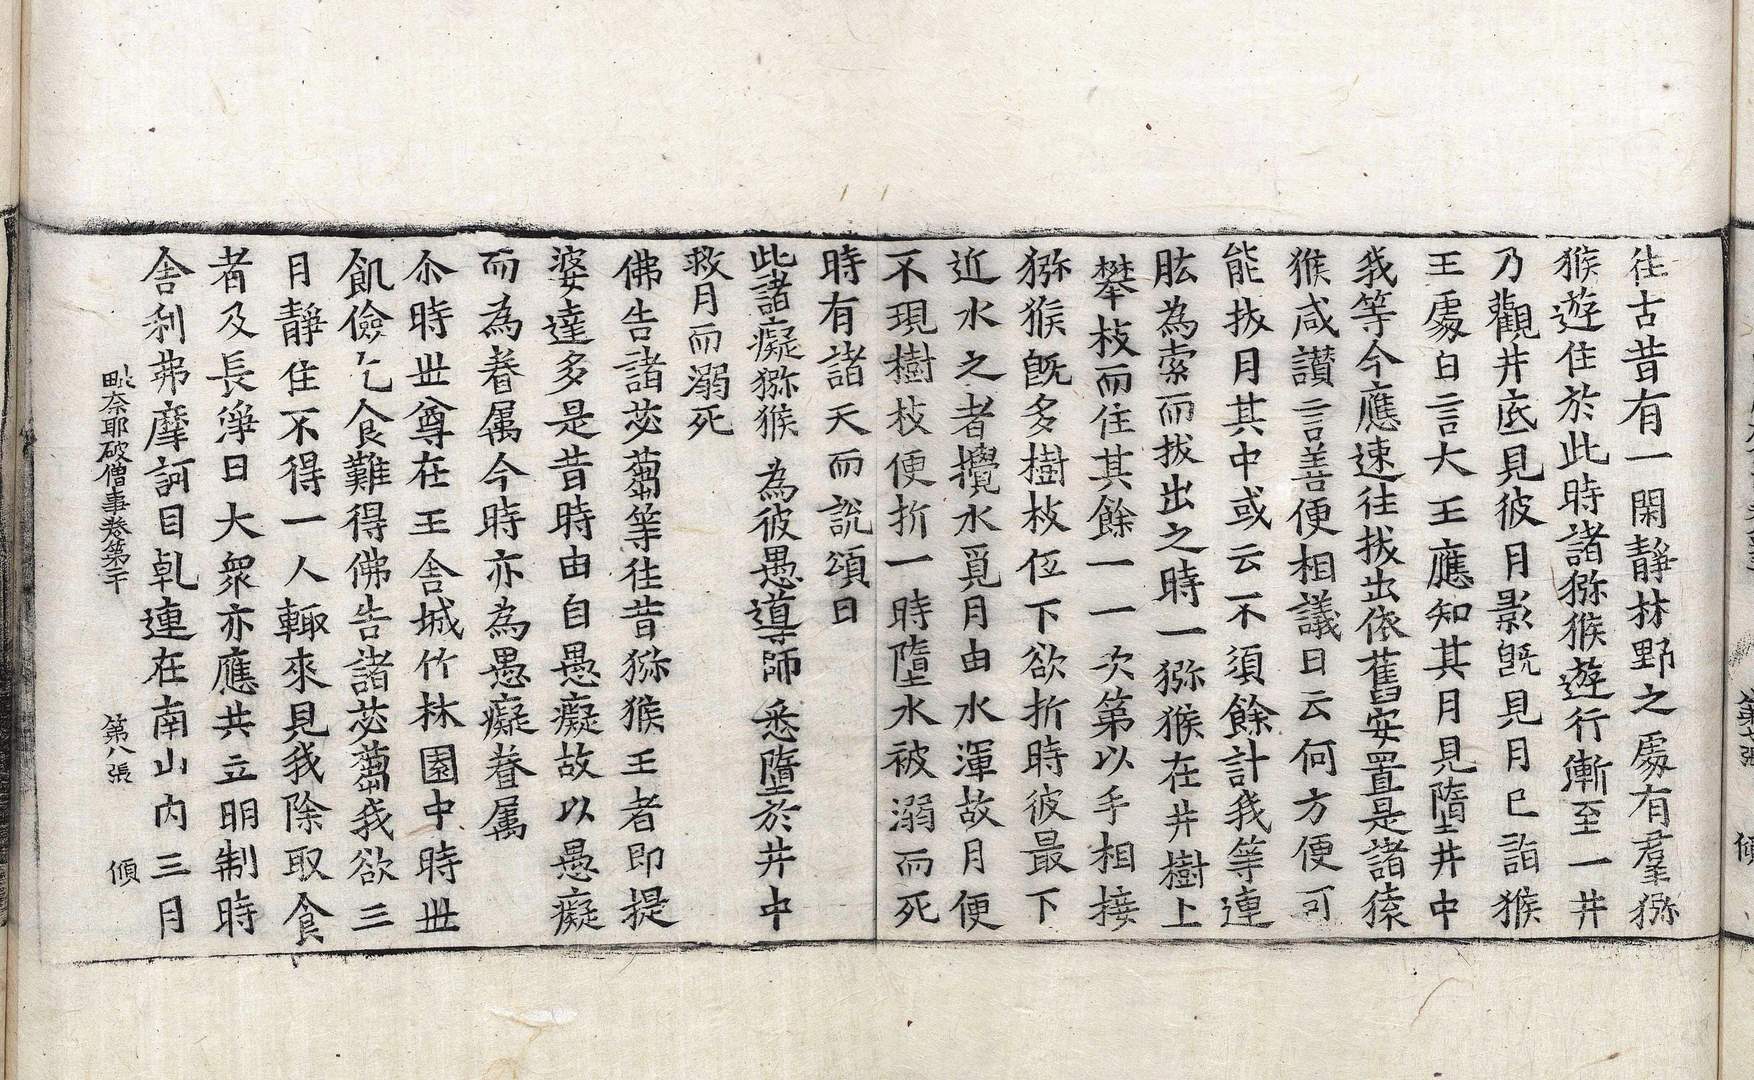 往古昔有一閑静林野之處有羣猕
猴遊住於此時諸猕猴遊行漸至一井
乃觀井底見彼月影旣見月已詣猴
王處白言大王應知其月見墮井中
我等今應速往拔出依舊安置是諸猿
猴咸讃言善便相議曰云何方便可
能拔月其中或云不須餘計我等連
肱為索而拔出之時一猕猴在井樹上
攀枝而住其餘一一次第以手相接
猕猴旣多樹枝伍下欲折時彼最下
近水之者攪水覓月由水渾故月便
不現樹枝便折一時墮水被溺而死
時有諸天而說頌曰
此諸癡猕猴 為彼愚導師 悉墮於井中
救月而溺死
佛告諸苾蒭等往昔猕猴王者即提
婆達多是昔時由自愚癡故以愚癡
而為眷属今時亦為愚癡眷属
尒時世尊在王舍城竹林園中時世
飢儉乞食難得佛告諸苾蒭我欲三
月靜住不得一人輙來見我除取食
者及長淨日大衆亦應共立明制時
舍利弗摩訶目乹連在南山內三月
毗奈耶破僧事卷第二十 第八張 傾